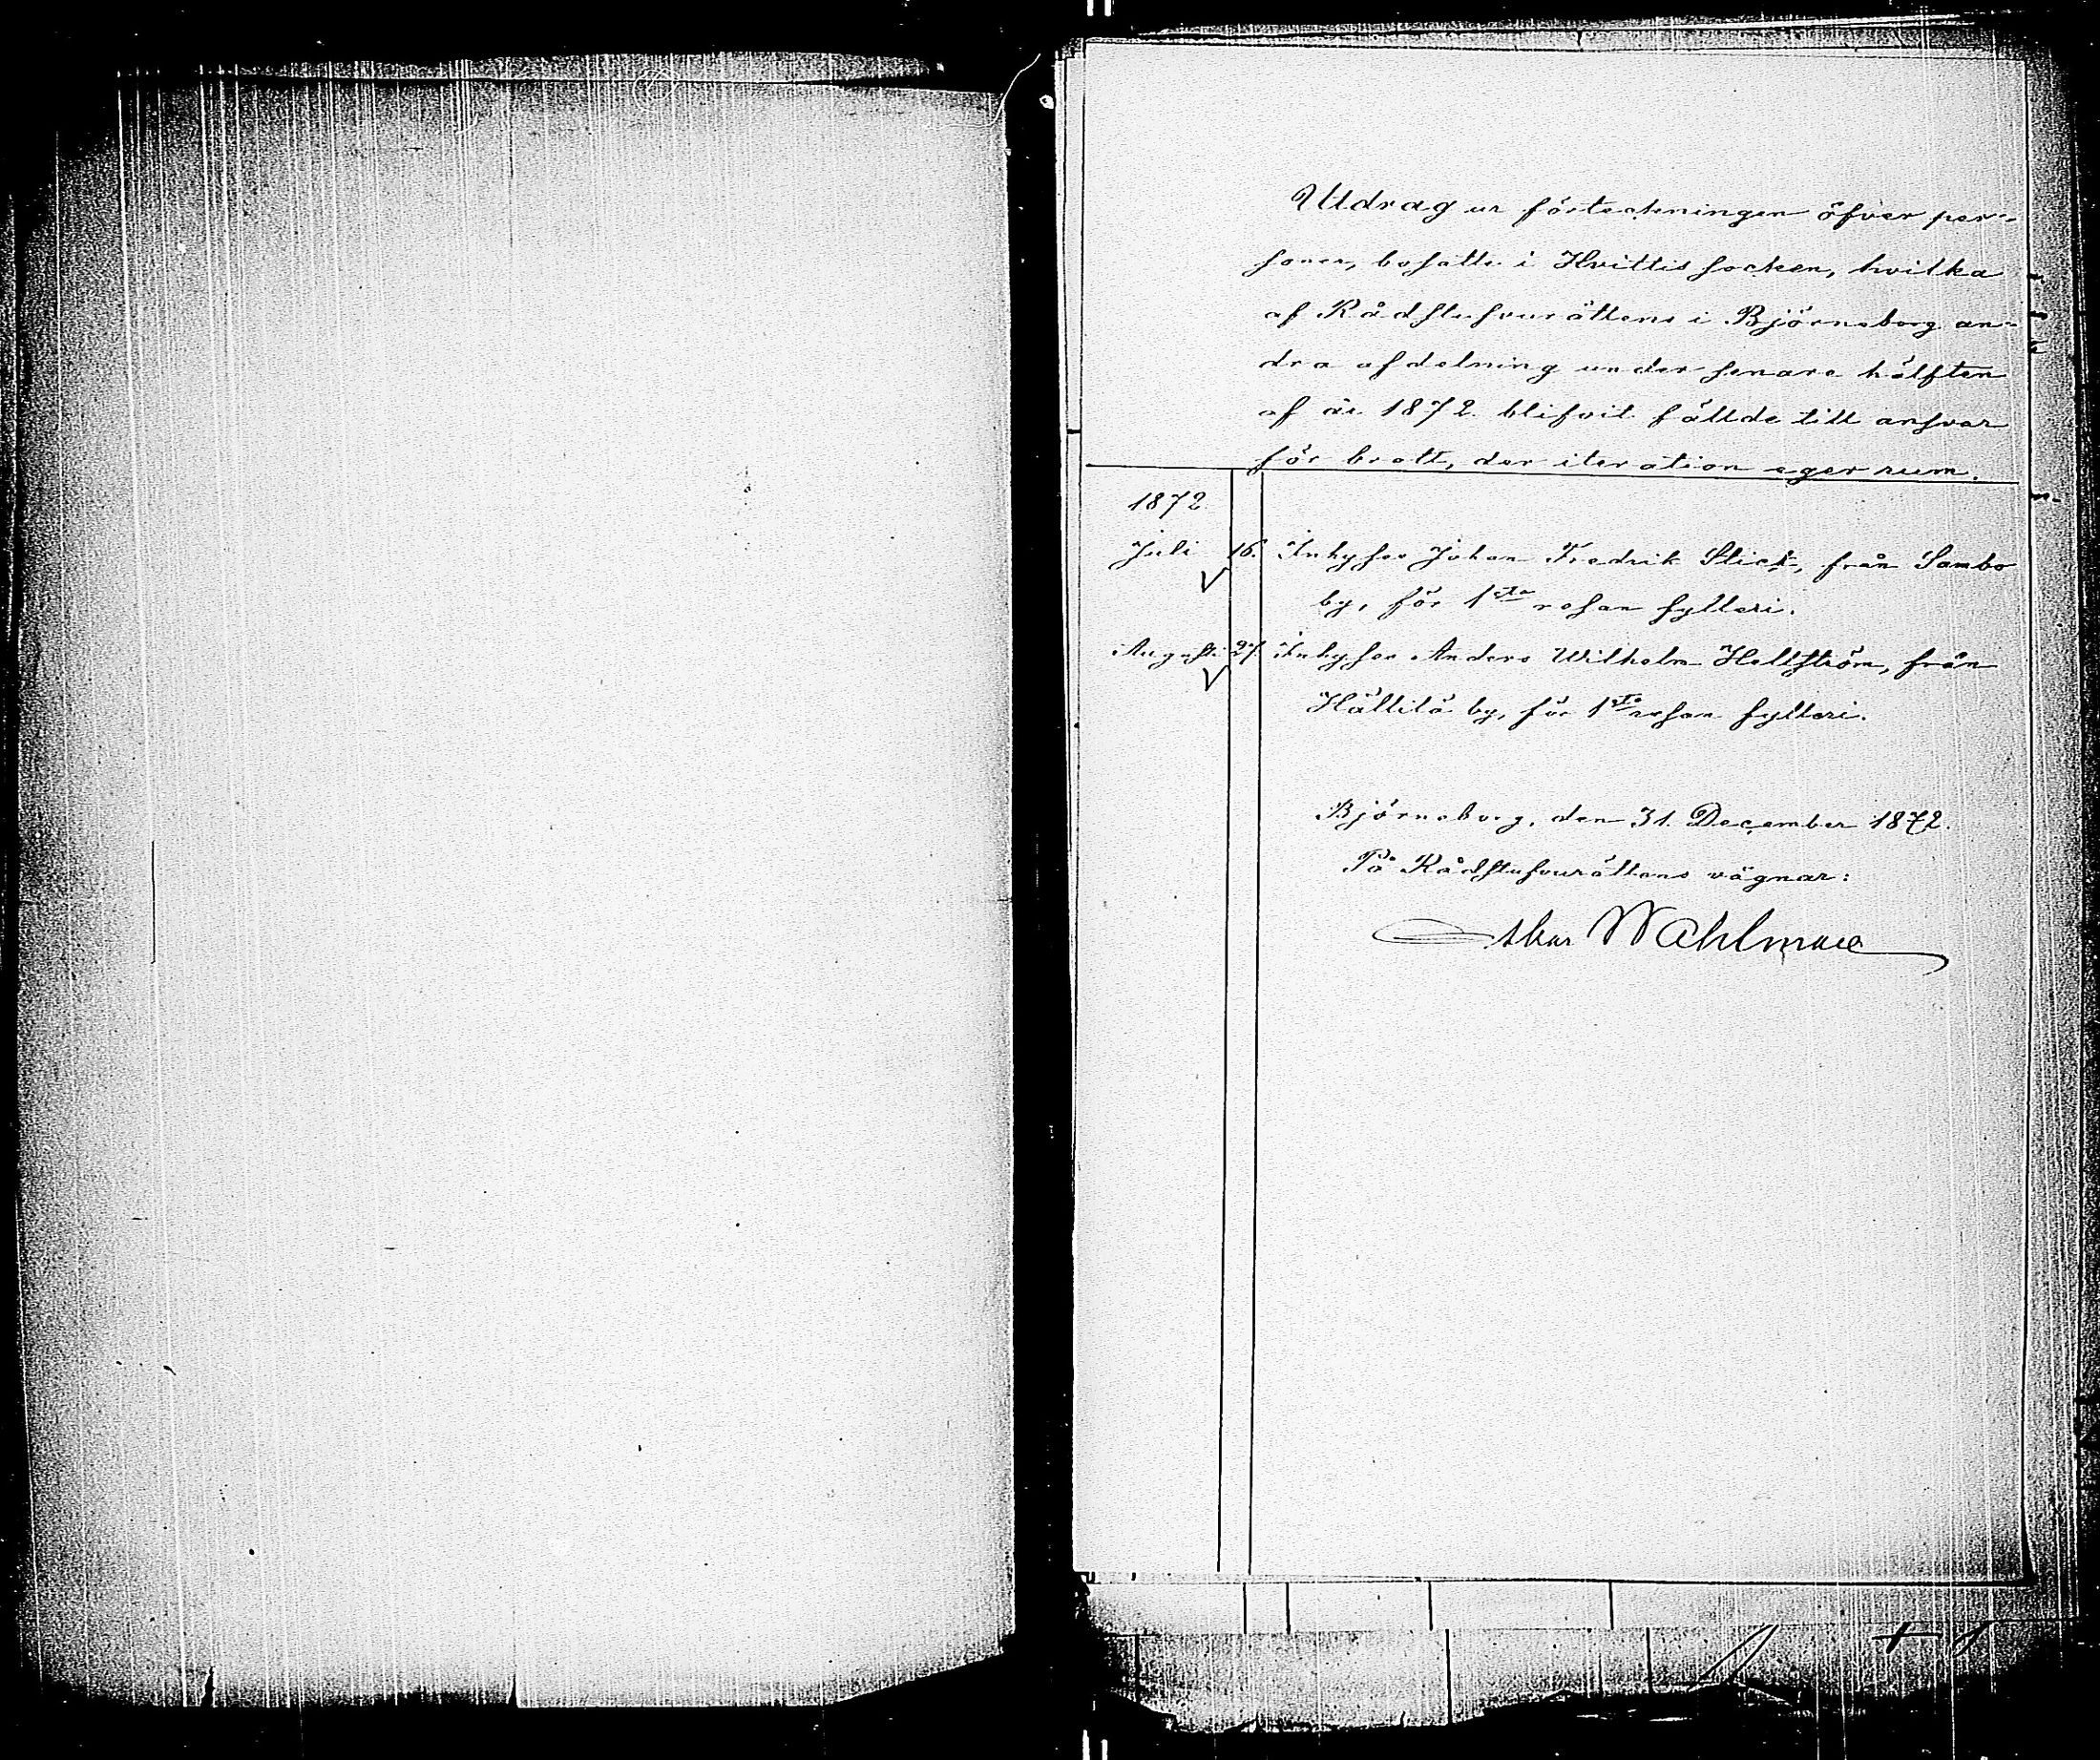 Utdrag ur förteckningen öfver per-
soner, bosatte i Hvittis socken, hvilka
af Rådstufvurättens i Björneborg an-
dra afdelning under senare hälften
af år 1872 blifvit fällde till ansvar
för brott, der iteration eger rum.
1872
Juli 16. Inhyses Johan Fredrik Slick, från Sambo
by, för 1sta resan fylleri.
Augusti 27. Inhyses Anders Wilhelm Hellström, från
Hältilä by, för 1sta resan fylleri.
Björneborg, den 31. December 1872.
På Rådstufvurättens vägnar:
Oskar Wahlman